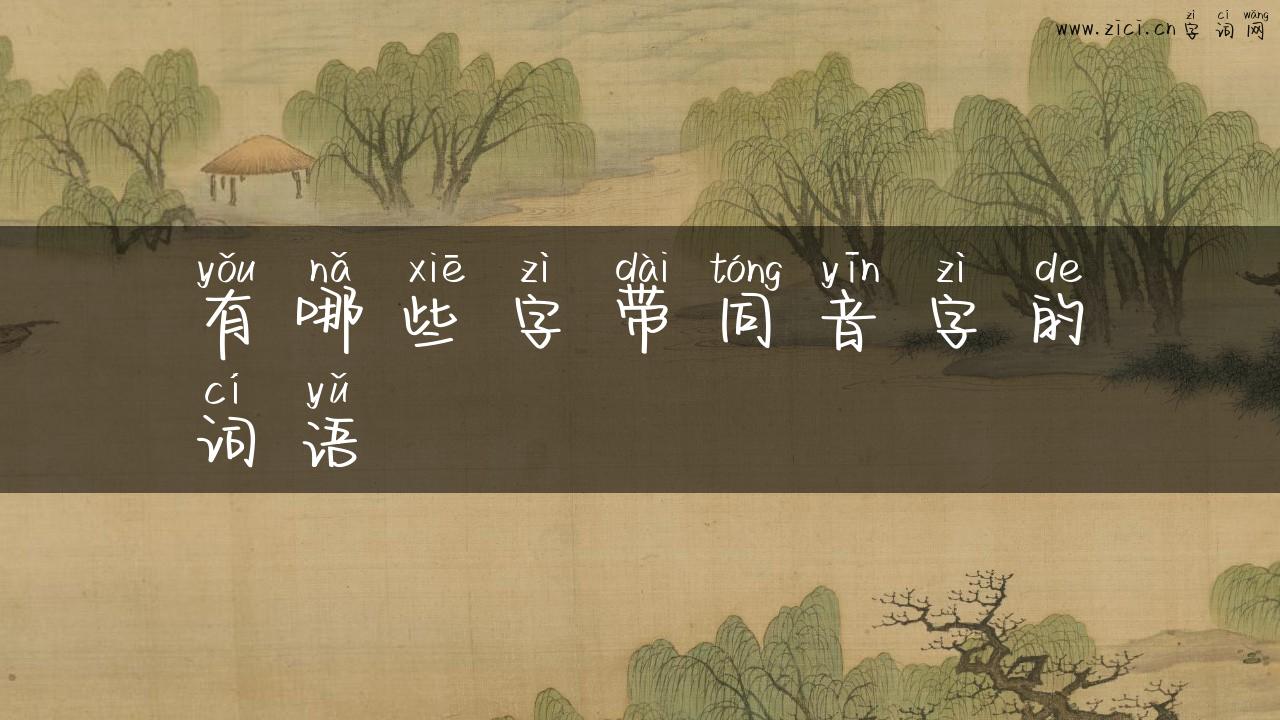 zì cí wǎng
www.zici.cn 字 词 网
yǒu nǎ xiē zì dài tóng yīn zì de
有 哪 些 字 带 同 音 字 的
cí yǔ
词 语